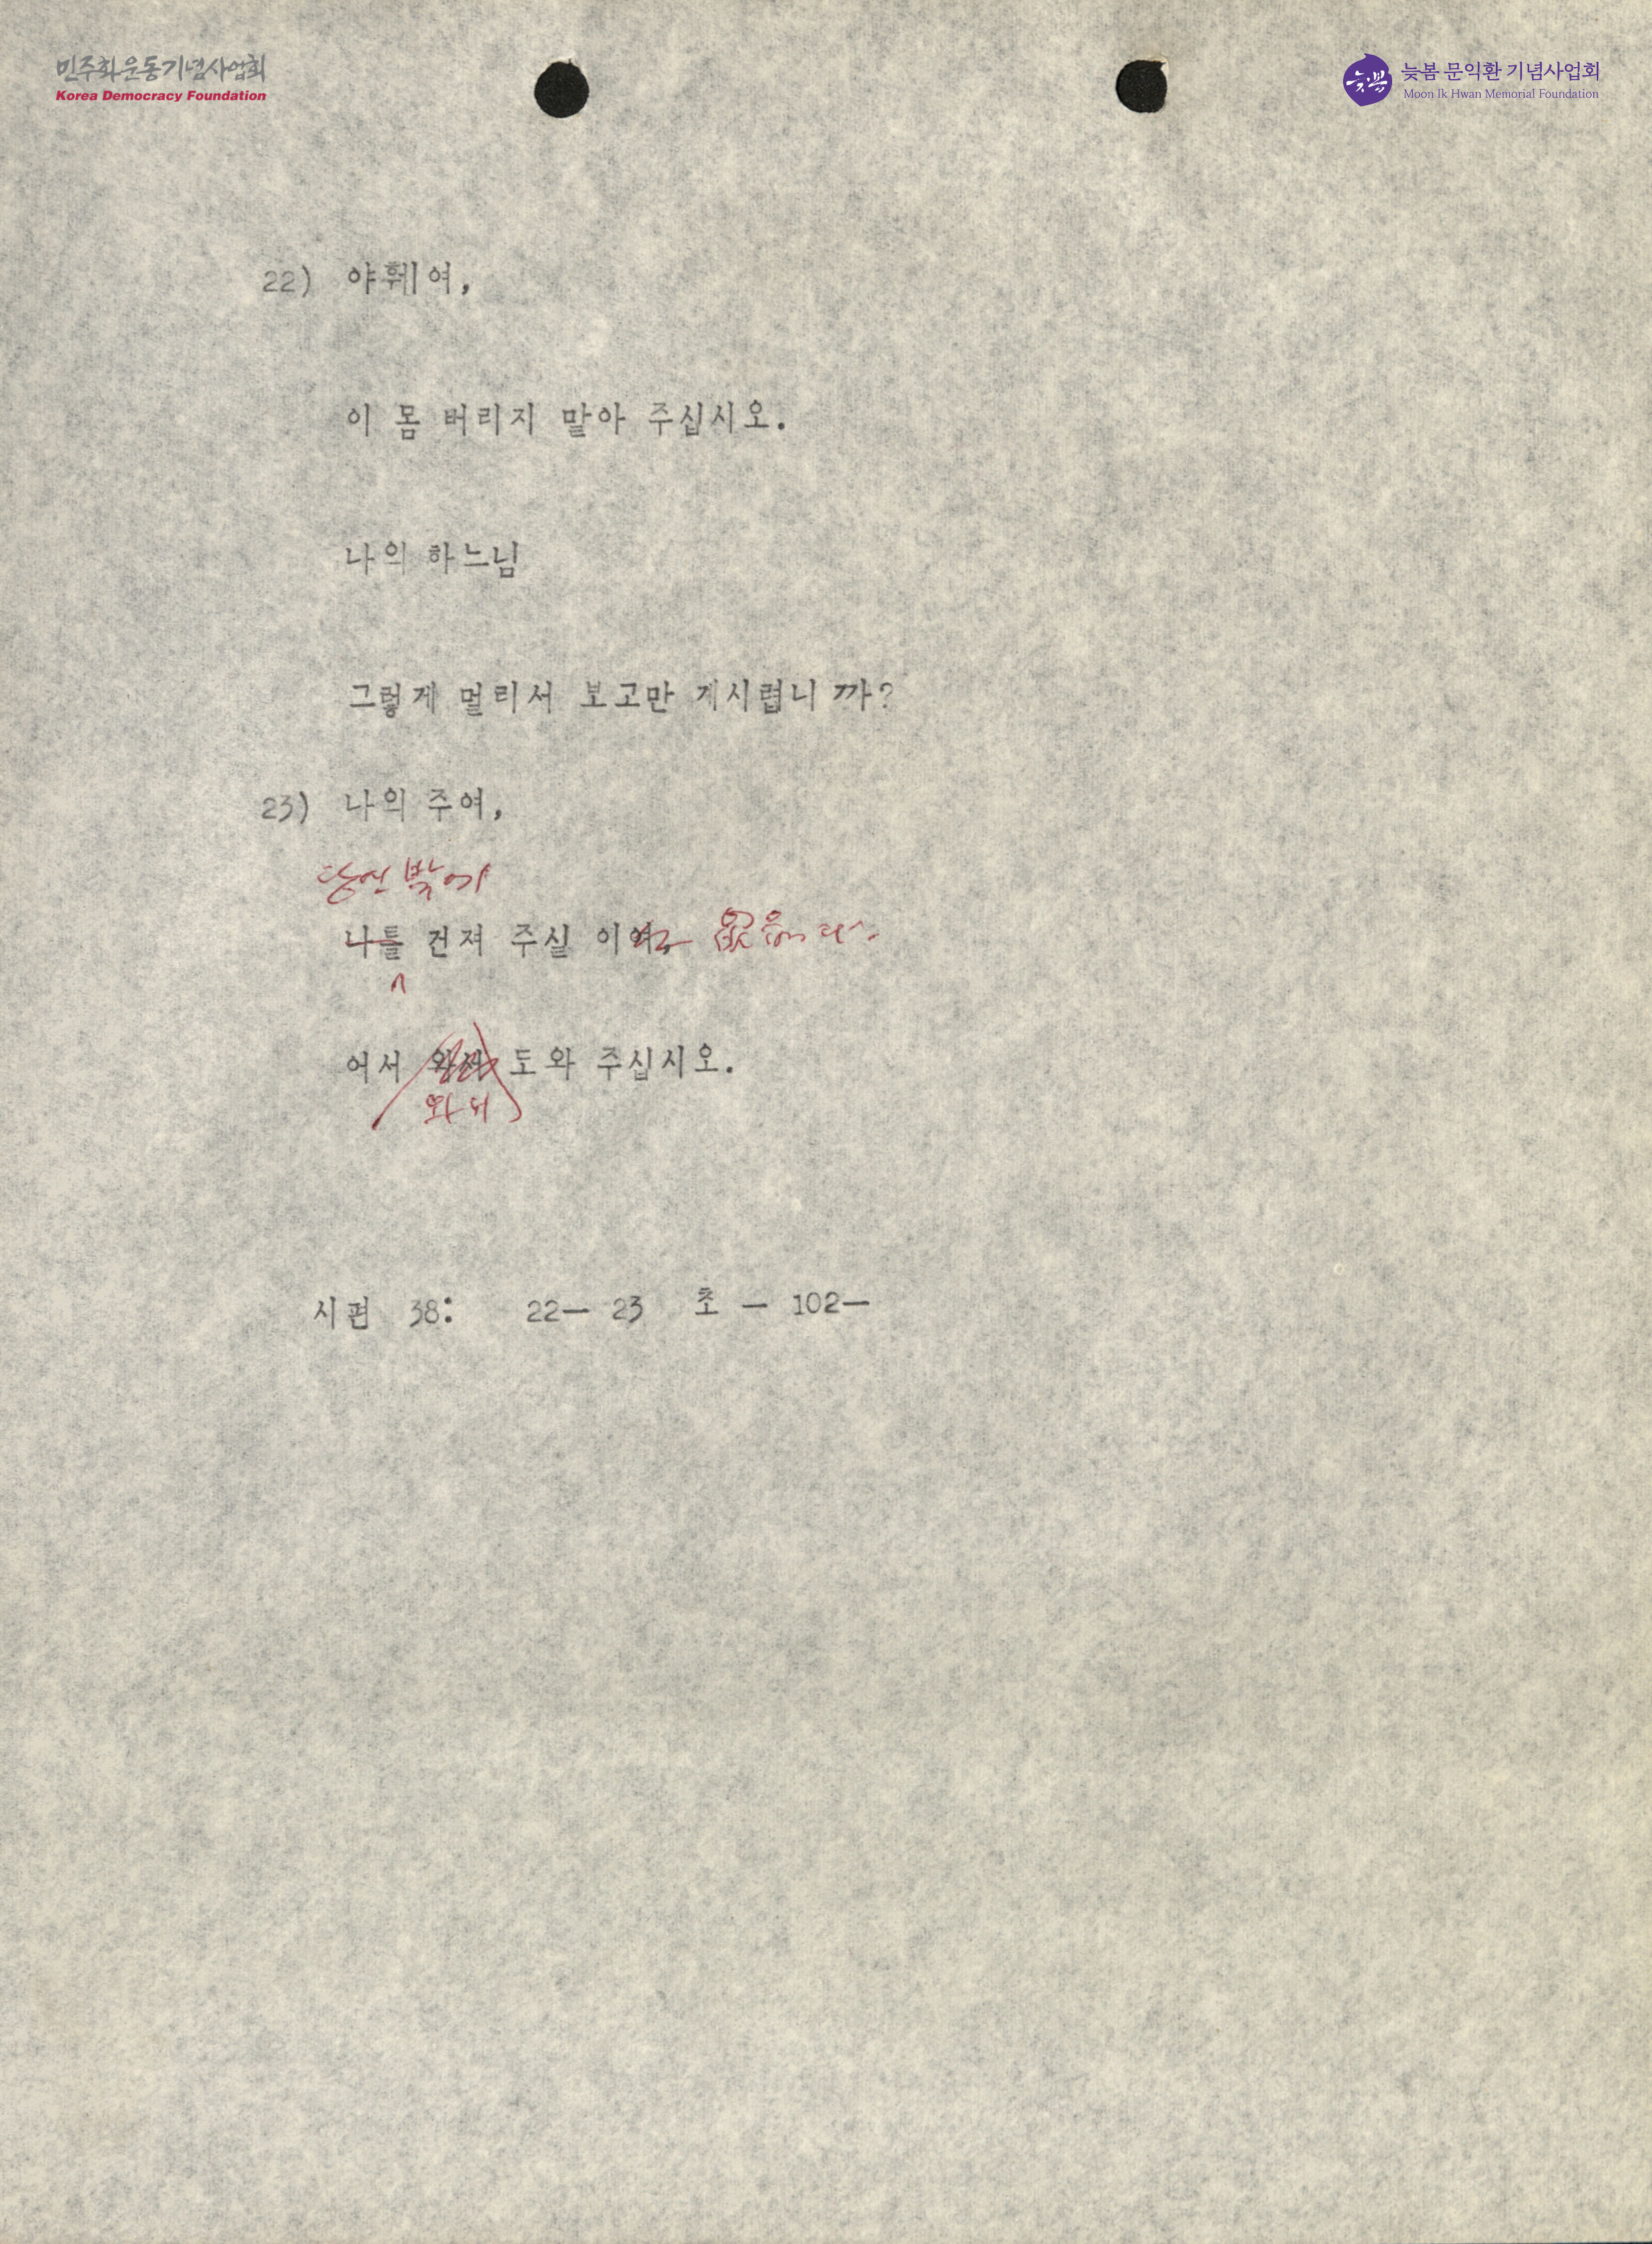 민주화운동기념사업회
Korea Democracy Foundation
늦봄
늦봄 문익환 기념사업회
Moon Ik Hwan Memorial Foundation
22) 야훼여,
이 몸 버리지 말아 주십시오.
나의 하느님
그렇게 멀리서 보고만 계시렵니까?
23) 나의 주여,
당신 밖에
나를 건져 주실 이
어서 와서 도와 주십시오.
와서
시편 38: 22— 23 초 — 102—